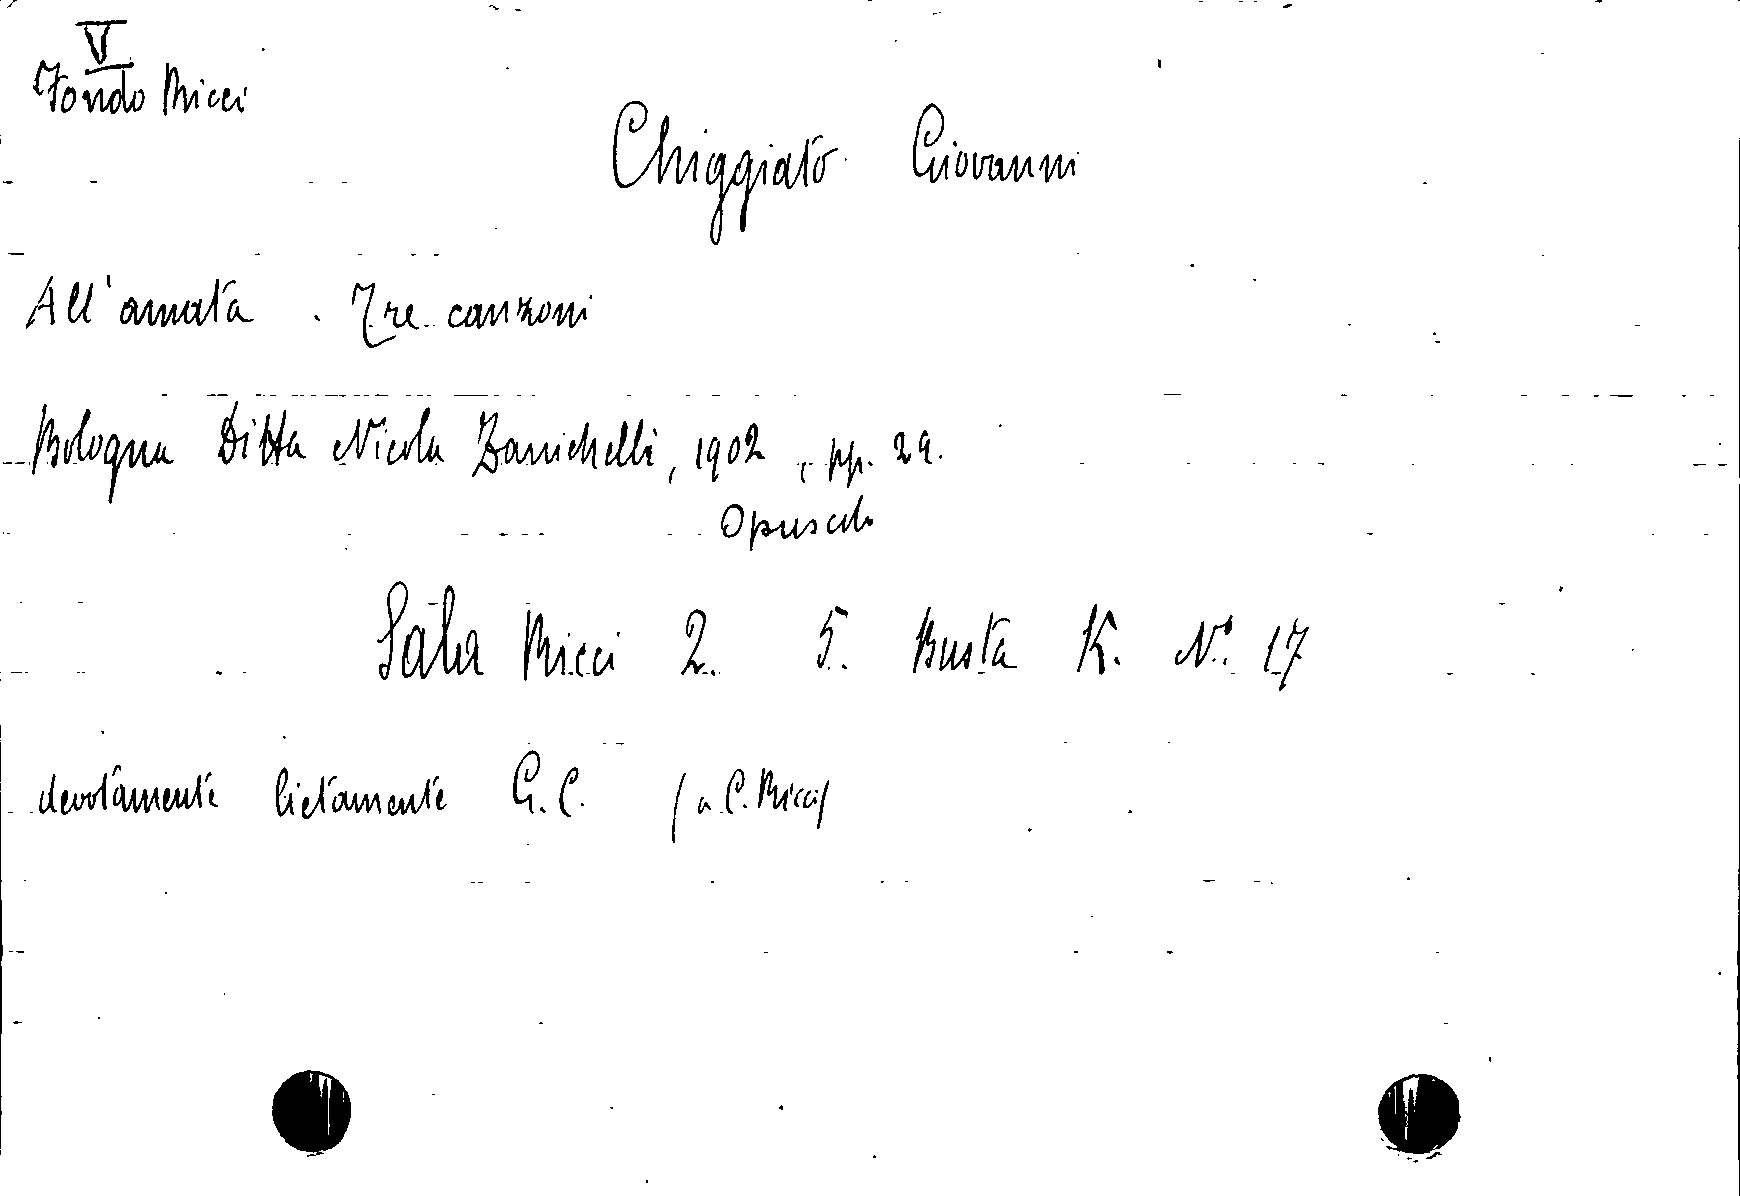 V
Fondo Ricci
Chiggiato Giovanni
All'amata . Tre canzoni
Bologna Ditta Nicola Zanichelli, 1902, pp. 29.
Opuscolo
Sala Ricci 2. 5. Busta K. N. 17
devotamente lietamente G. C. (a C. Ricci)